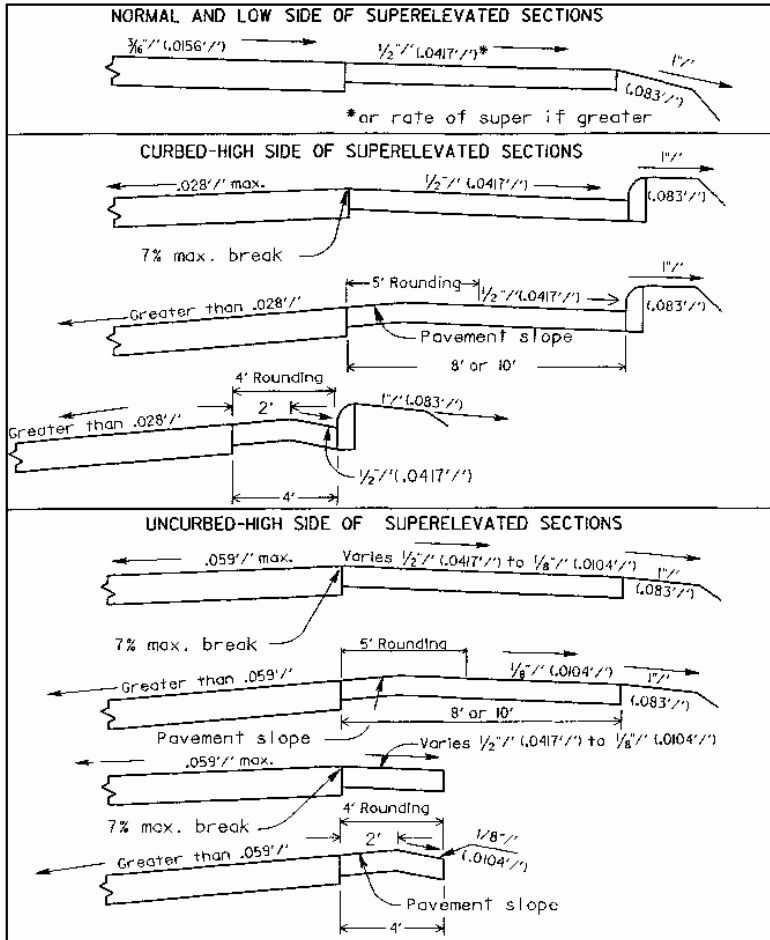 NORMAL AND LOW SIDE OF SUPERELEVATED SECTIONS
3/16"/'(.0156'/') 1/2"/'(.0417'/')* 1"/'
(.083'/')
*or rate of super if greater
CURBED-HIGH SIDE OF SUPERELEVATED SECTIONS
1"/'
.028'/' max. 1/2"/'(.0417'/') (.083'/')
7% max. break
1"/'
5' Rounding
Greater than .028'/' 1/2"/'(.0417'/') (.083'/')
Pavement slope
8' or 10'
4' Rounding
2' 1"/'(.083'/')
Greater than .028'/'
1/2"/'(.0417'/')
4'
UNCURBED-HIGH SIDE OF SUPERELEVATED SECTIONS
.059'/' max. Varies 1/2"/'(.0417'/') to 1/8"/'(.0104'/')
1"/'
(.083'/')
7% max. break
5' Rounding
Greater than .059'/' 1/8"/'(.0104'/') 1"/'
(.083'/')
8' or 10'
Pavement slope
Varies 1/2"/'(.0417'/') to 1/8"/'(.0104'/')
.059'/' max.
7% max. break
4' Rounding
2' 1/8"/'
(.0104'/')
Greater than .059'/'
Pavement slope
4'